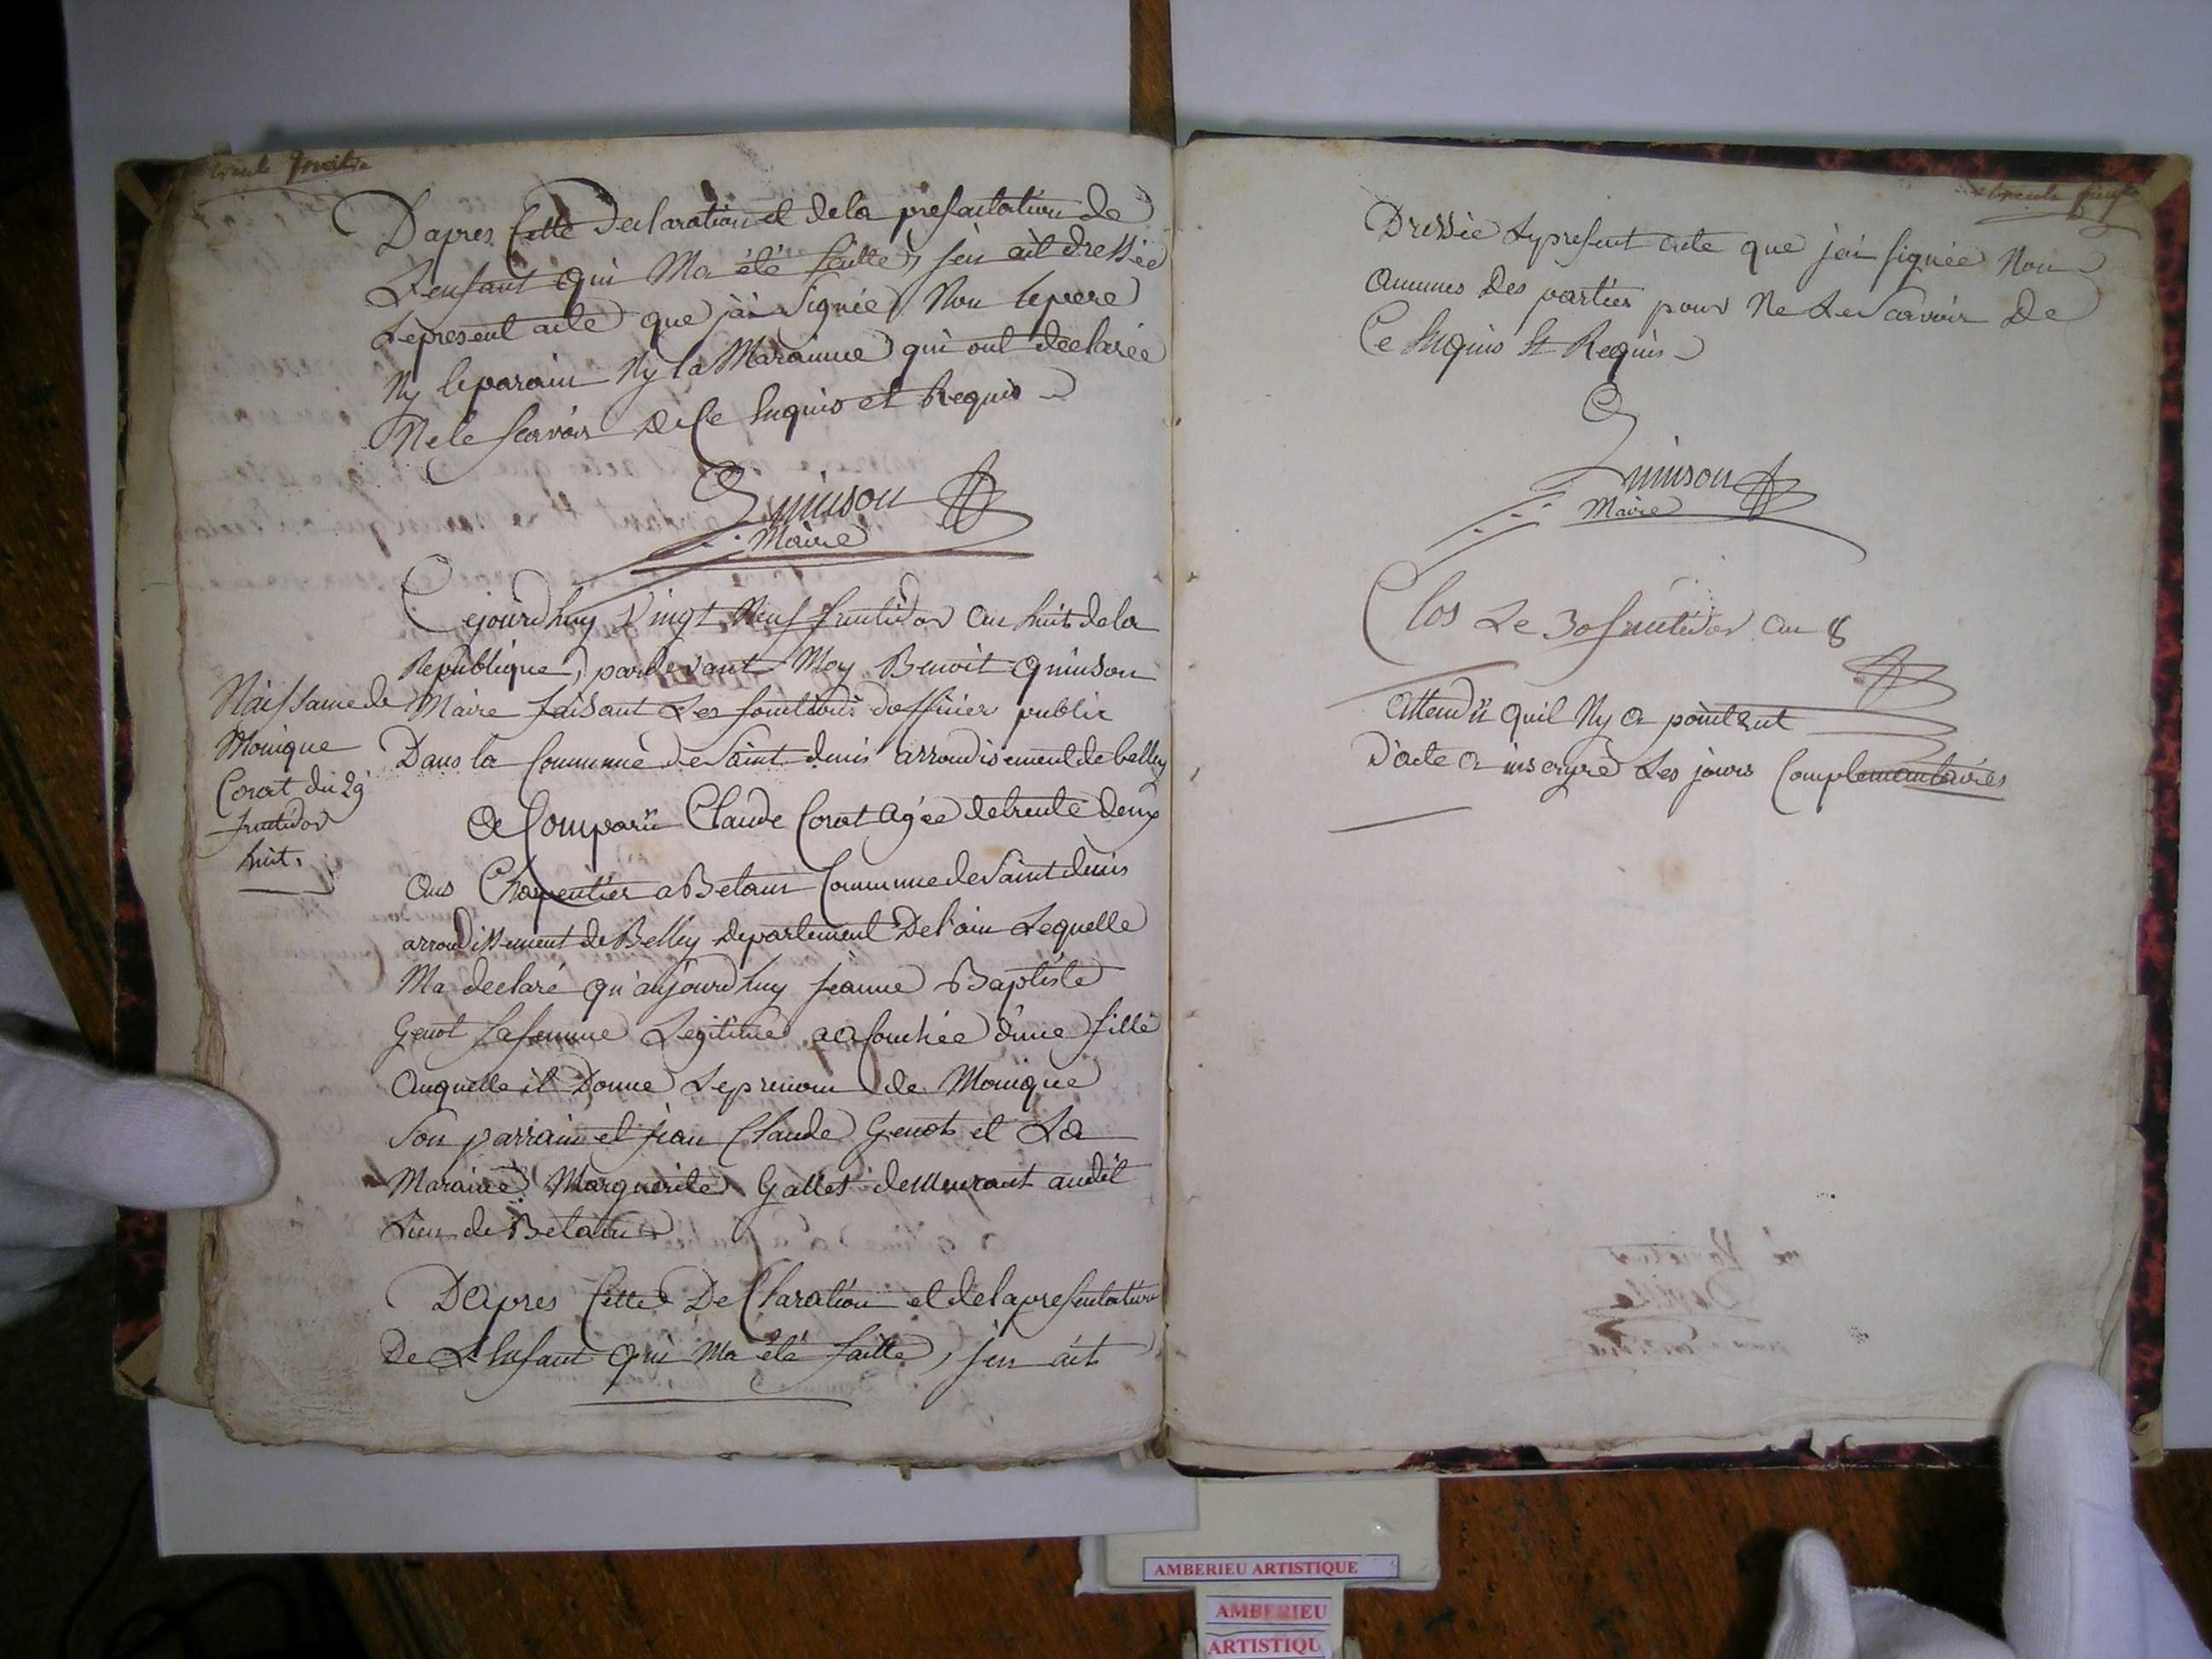 trente quatre
D'apres Cette declaration et de la presentation de
L'enfant qui Ma été faitte, j'en ait dressée
Le present acte que j'ai Signée Non le pere
Ny le parain Ny la Marainne qui ont declarée
Ne le scavoir de Ce Enquis et Requis
Quinson
Maire
Cejourd'huy Vingt Neuf fructidor an huit de la
Republique, pardevant Moy Benoit quinson
Maire faisant Les fonctions d'officier public
Dans la Commune de Saint denis arrondisement de belley
Naissance de
Monique
Corat du 29
fructidor
huit.
a Comparü Claude Corat Agée de trente deux
ans Charpentier a Betan Commune de Saint denis
arrondissement de Belley departement De l'ain Lequelle
Ma declaré qu'aujourd'huy jeanne Baptiste
Genot sa femme Legitime a acouchée d'une fille
Auquelle il Donne Le prenom de Monique
Son parrain et jean Claude Genot et La
Maraine Marguerite Gallet demeurant audit
Lieu de Betan
Dapres Cette DeClaration et de la presentation
De L'Enfant qui Ma été faitte, j'en ait
Dressée Le present acte que j'ai signée Non
aucunes Des parties pour Ne Le Scavoir De
Ce Enquis Et Requis
Quinson
Maire
Clos Le 30 fructidor an 8
attendü quil Ny a point eut
D'acte a inscryre Les jours Complementaires
AMBERIEU ARTISTIQUE
AMBERIEU
ARTISTIQU